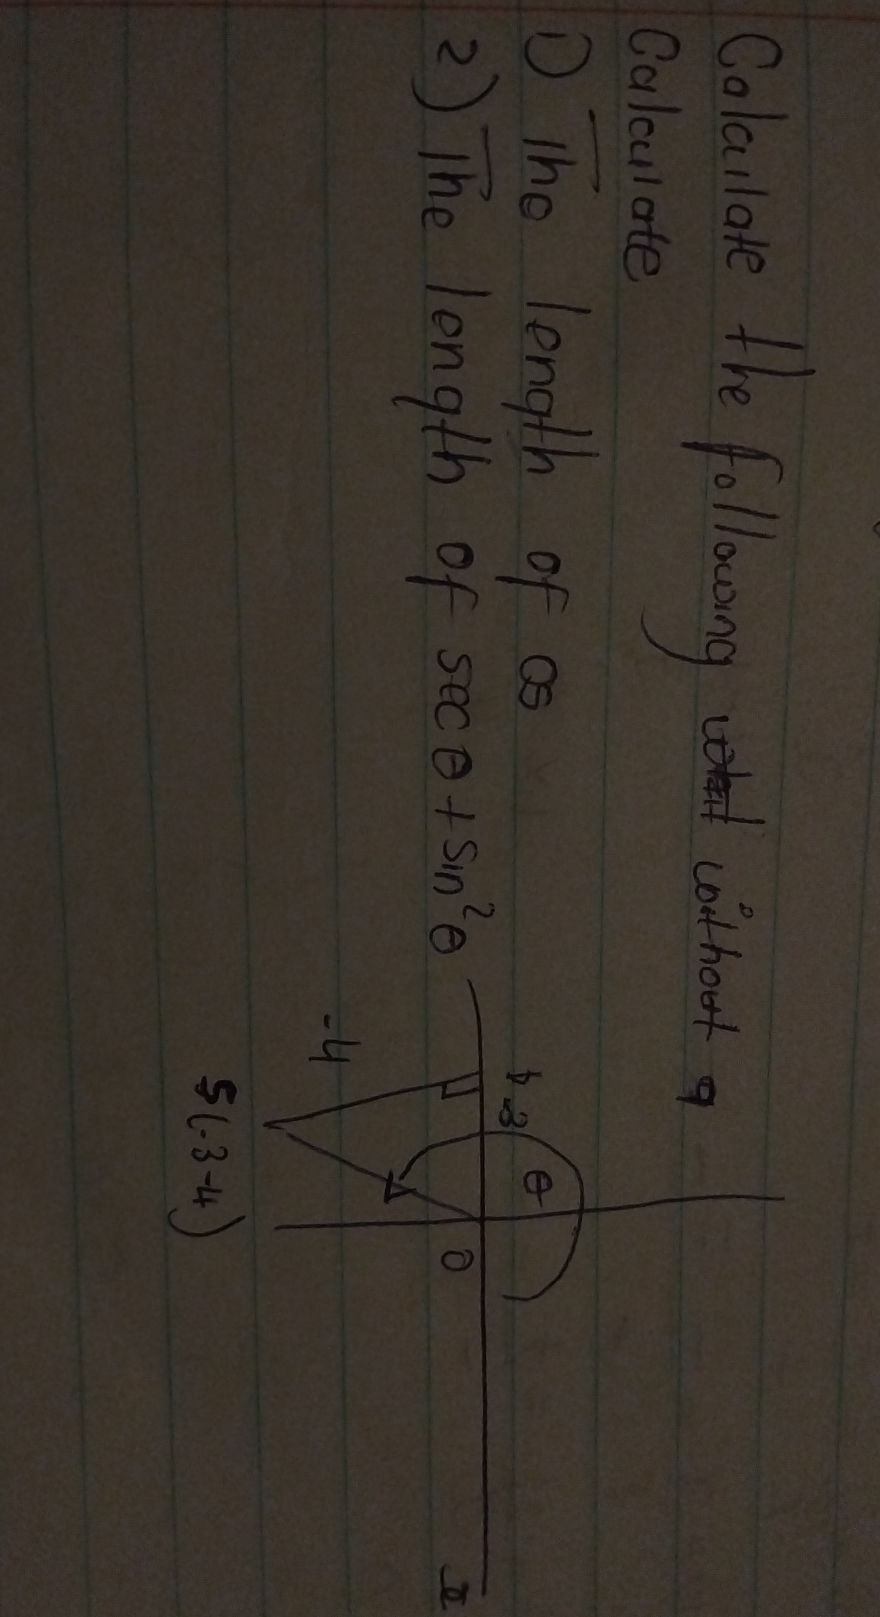 Calculate the following without
Calculate
1) The length of OS
2) The length of sec θ + sin²θ
-3
θ
O
x
-4
S(-3-4)